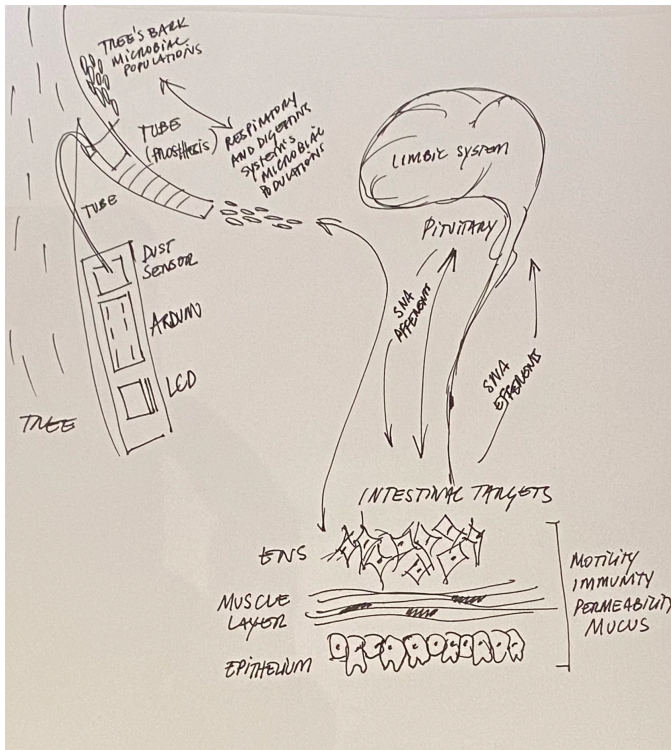 TREE'S BARK
MICROBIAL
POPULATIONS
TUBE
(PROSTHESIS)
RESPIRATORY
AND DIGESTIVE
SYSTEM'S
MICROBIAL
POPULATIONS
TUBE
DUST
SENSOR
ARDUINO
LCD
TREE
LIMBIC SYSTEM
PITUITARY
SNA
AFFERENTS
SNA
EFFERENTS
INTESTINAL TARGETS
ENS
MUSCLE
LAYER
EPITHELIUM
MOTILITY
IMMUNITY
PERMEABILITY
MUCUS